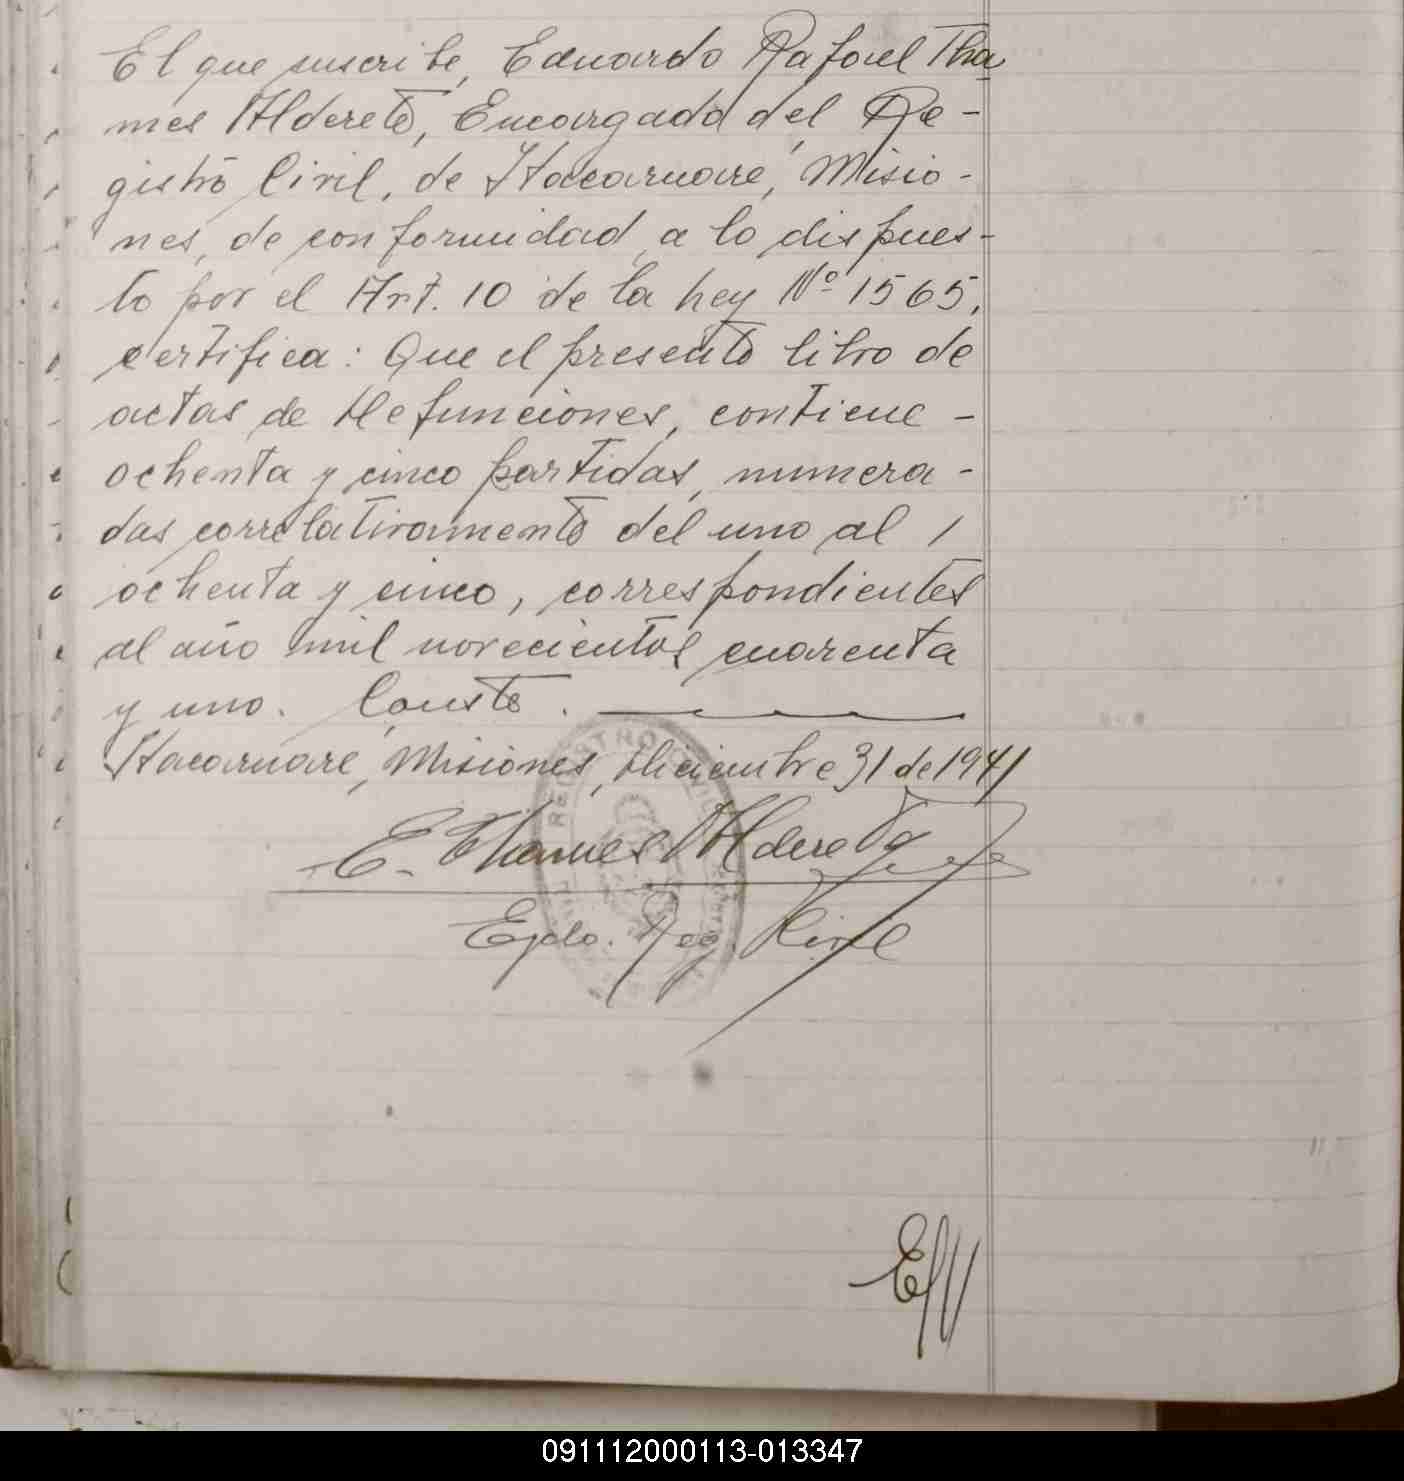 El que suscribe, Eduardo Rafael Tha
mes Alderete, Encargado del Re-
gistro Civil, de Itacaruaré, Misio-
nes, de conformidad a lo dispues-
to por el Art. 10 de la Ley Nº 1565,
certifica: Que el presente libro de
actas de Defunciones, contiene -
ochenta y cinco partidas, numera-
das correlativamente del uno al /
ochenta y cinco, correspondientes
al año mil novecientos cuarenta
y uno. Conste.
Itacaruaré, Misiones, Diciembre 31 de 1941
E. Thames Alderete
Egdo. Reg. Civil
REGISTRO CIVIL
091112000113-013347